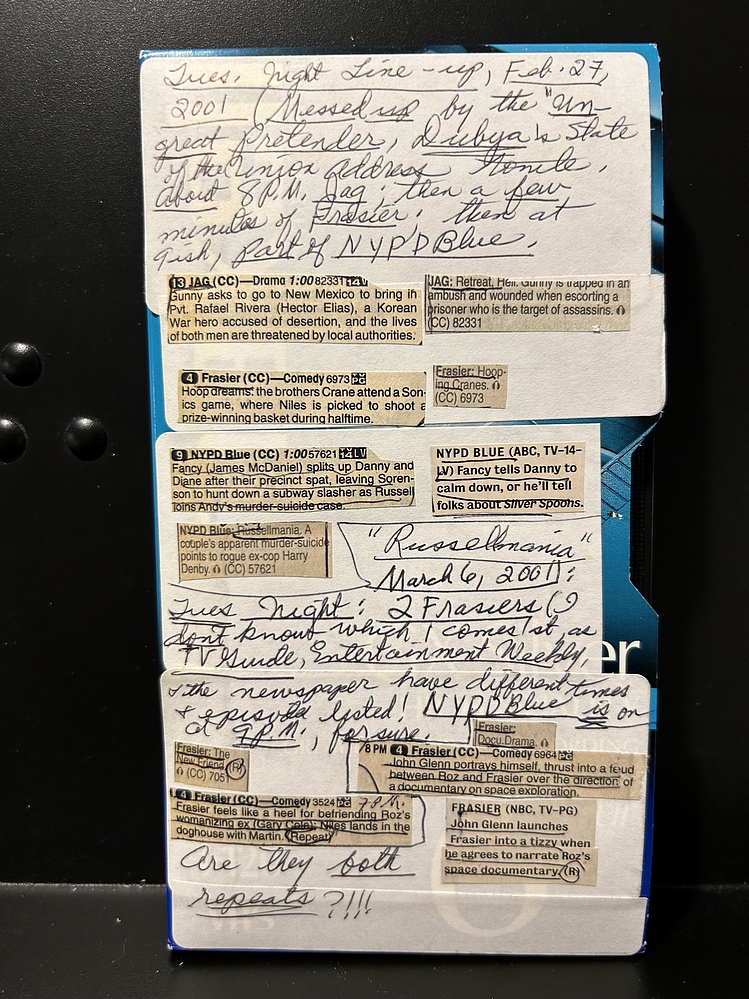 Tues. Night Line-up, Feb. 27,
2001 (Messed up by the "Un-
great Pretender, Dubya's State
of the union address tonite.
About 8 P.M. Jag; then a few
minutes of Frasier; then at
9ish, part of NYPD Blue.
13 JAG (CC)—Drama 1:00 82331 14 LV
Gunny asks to go to New Mexico to bring in
Pvt. Rafael Rivera (Hector Elias), a Korean
War hero accused of desertion, and the lives
of both men are threatened by local authorities.
JAG: Retreat, Hell. Gunny is trapped in an
ambush and wounded when escorting a
prisoner who is the target of assassins.
(CC) 82331
4 Frasier (CC)—Comedy 6973 PG
Hoop dreams: the brothers Crane attend a Son-
ics game, where Niles is picked to shoot a
prize-winning basket during halftime.
Frasier: Hoop-
ing Cranes.
(CC) 6973
9 NYPD Blue (CC) 1:00 57621 14 LV
Fancy (James McDaniel) splits up Danny and
Diane after their precinct spat, leaving Soren-
son to hunt down a subway slasher as Russell
joins Andy's murder-suicide case.
NYPD BLUE (ABC, TV-14-
LV) Fancy tells Danny to
calm down, or he'll tell
folks about Silver Spoons.
NYPD Blue: Russellmania. A
couple's apparent murder-suicide
points to rogue ex-cop Harry
Denby. (CC) 57621
"Russellmania"
March 6, 2001):
Tues Night: 2 Frasiers (I
don't know which 1 comes 1st, as
TV Guide, Entertainment Weekly,
er
& the newspaper have different times
& episodes listed! NYPD Blue is on
at 9 P.M., for sure.
Frasier:
Docu.Drama.
Frasier: The
New Friend (R)
(CC) 705
8 PM 4 Frasier (CC)—Comedy 6964 PG
John Glenn portrays himself, thrust into a feud
between Roz and Frasier over the direction of
a documentary on space exploration.
4 Frasier (CC)—Comedy 3524 PG 7 P.M.
Frasier feels like a heel for befriending Roz's
womanizing ex (Gary Cole); Niles lands in the
doghouse with Martin. (Repeat)
FRASIER (NBC, TV-PG)
John Glenn launches
Frasier into a tizzy when
he agrees to narrate Roz's
space documentary. (R)
Are they both
repeats?!!!